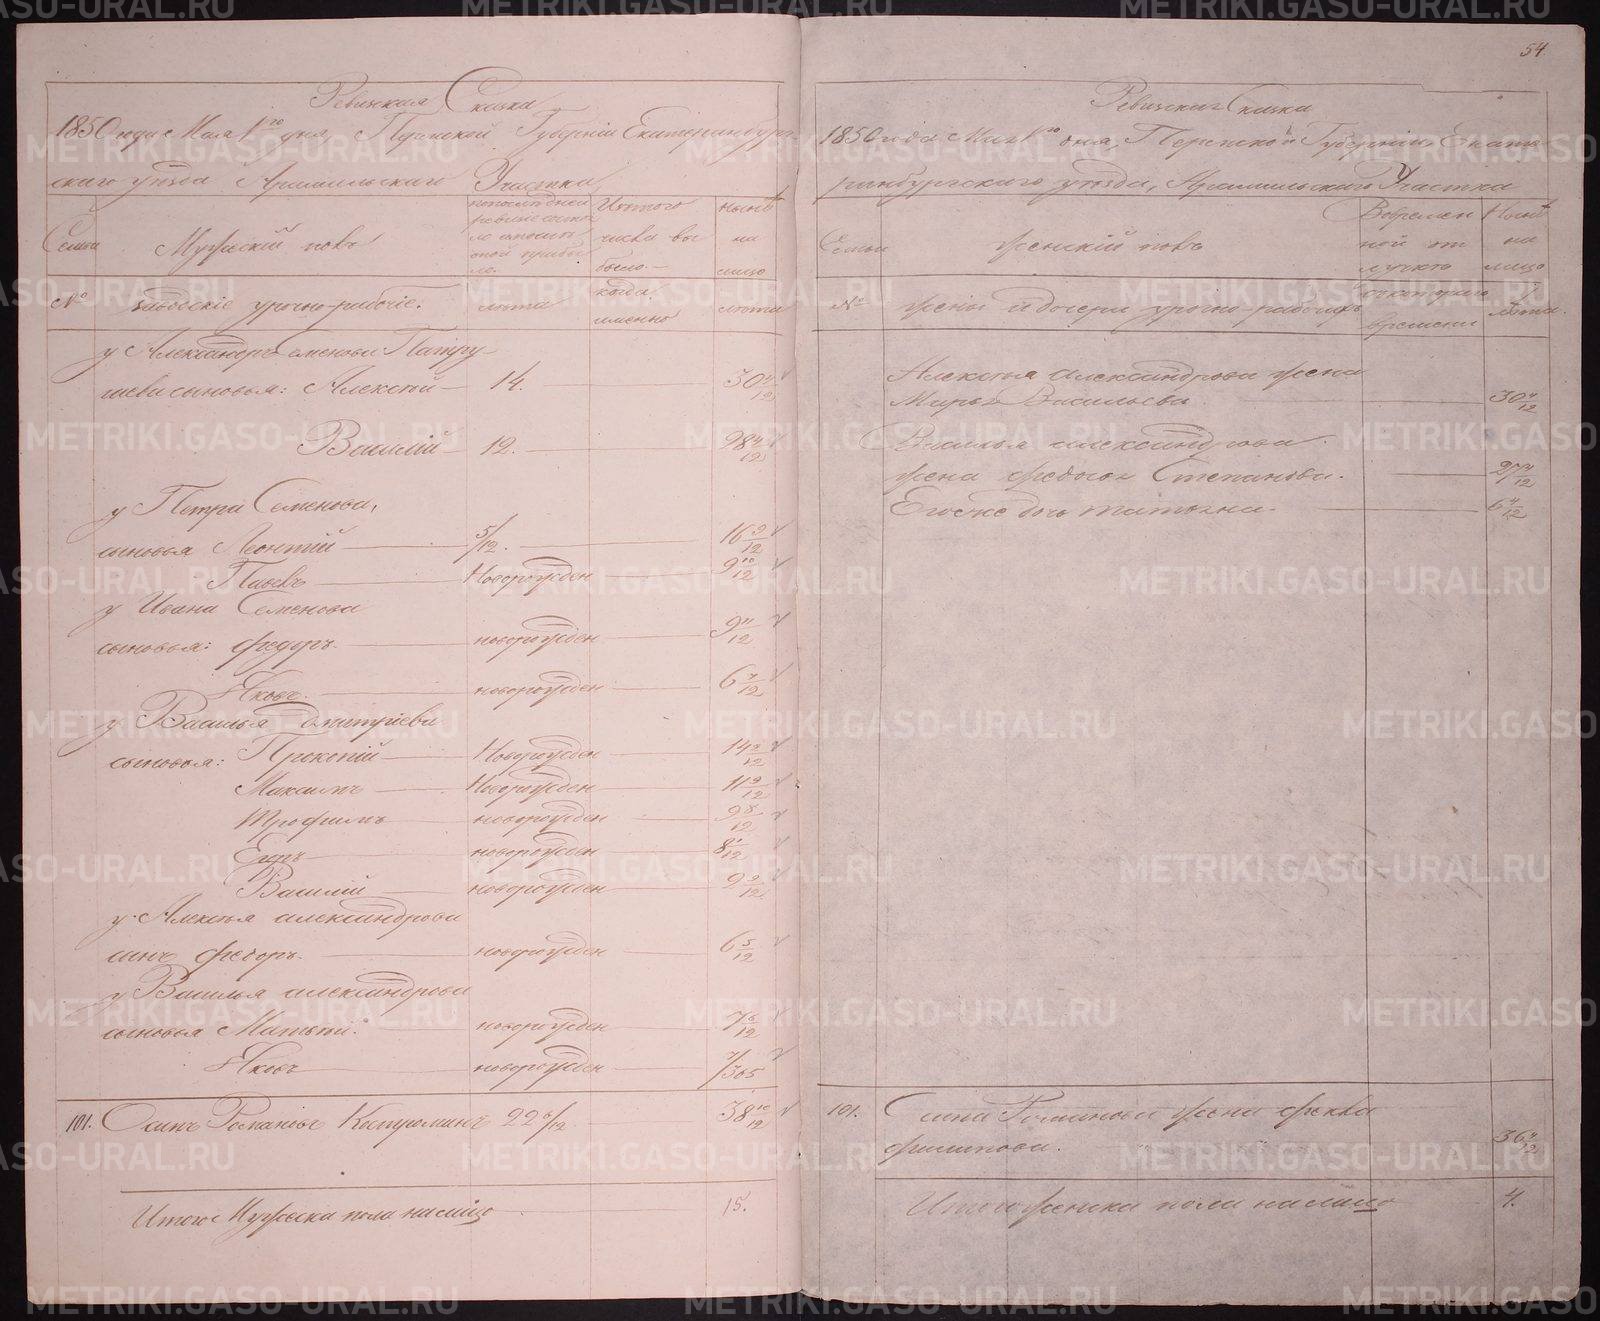 54
Ревижская Сказка
1850 года Мая 1го дня, Пермской Губерніи Екатеринбург-
скаго уѣзда Арамильскаго Участка
Семьи
Мужескій полъ
Изъ того
числа вы
было
нынѣ
на
лицо
№
Заводскіе урочно-рабочіе.
лѣта
когда
именно
лѣта
у Александра Семенова Патру-
шева сыновья: Алексѣй 14. 30 4/12
Василій 12. 28 4/12
у Петра Семенова,
сыновья Леонтій 5/12. 16 9/12
Павелъ Новорожден 9 10/12
у Ивана Семенова
сыновья: Федоръ новорожден 9 11/12
Яковъ новорожден 6 7/12
у Василья Дмитріева
сыновья: Прокопій Новорожден 14 9/12
Максимъ Новорожден 11 9/12
Трофимъ новорожден 9 8/12
Егоръ новорожден
Василій новорожден 9 9/12
у Алексѣя Александрова
сынъ Федоръ новорожден 6 5/12
у Василья Александрова
сыновья Матвѣй новорожден
Яковъ новорожден 7/365
101. Осипъ Романовъ 22 6/12 38 10/12
Итого Мужеска пола налицо 15.
Ревижская Сказка
1850 года Мая 1го дня, Пермской Губерніи, Екате-
ринбургскаго уѣзда, Арамильскаго Участка
Семьи
Женскій полъ
Во времен
ной от
лучкѣ
Нынѣ
на
лицо
№
Жены и дочери урочно-рабочихъ
съ котораго
времени
лѣта.
Алексѣя Александрова жена
Марья Васильева 30 4/12
Василья Александрова
жена Федосья Степанова. 27 4/12
Его же дочь Татьяна. 6 4/12
101. Осипа Романова жена Фекла
Филипова. 36 4/12
Итого женска пола налицо 4.
METRIKI.GASO-URAL.RU